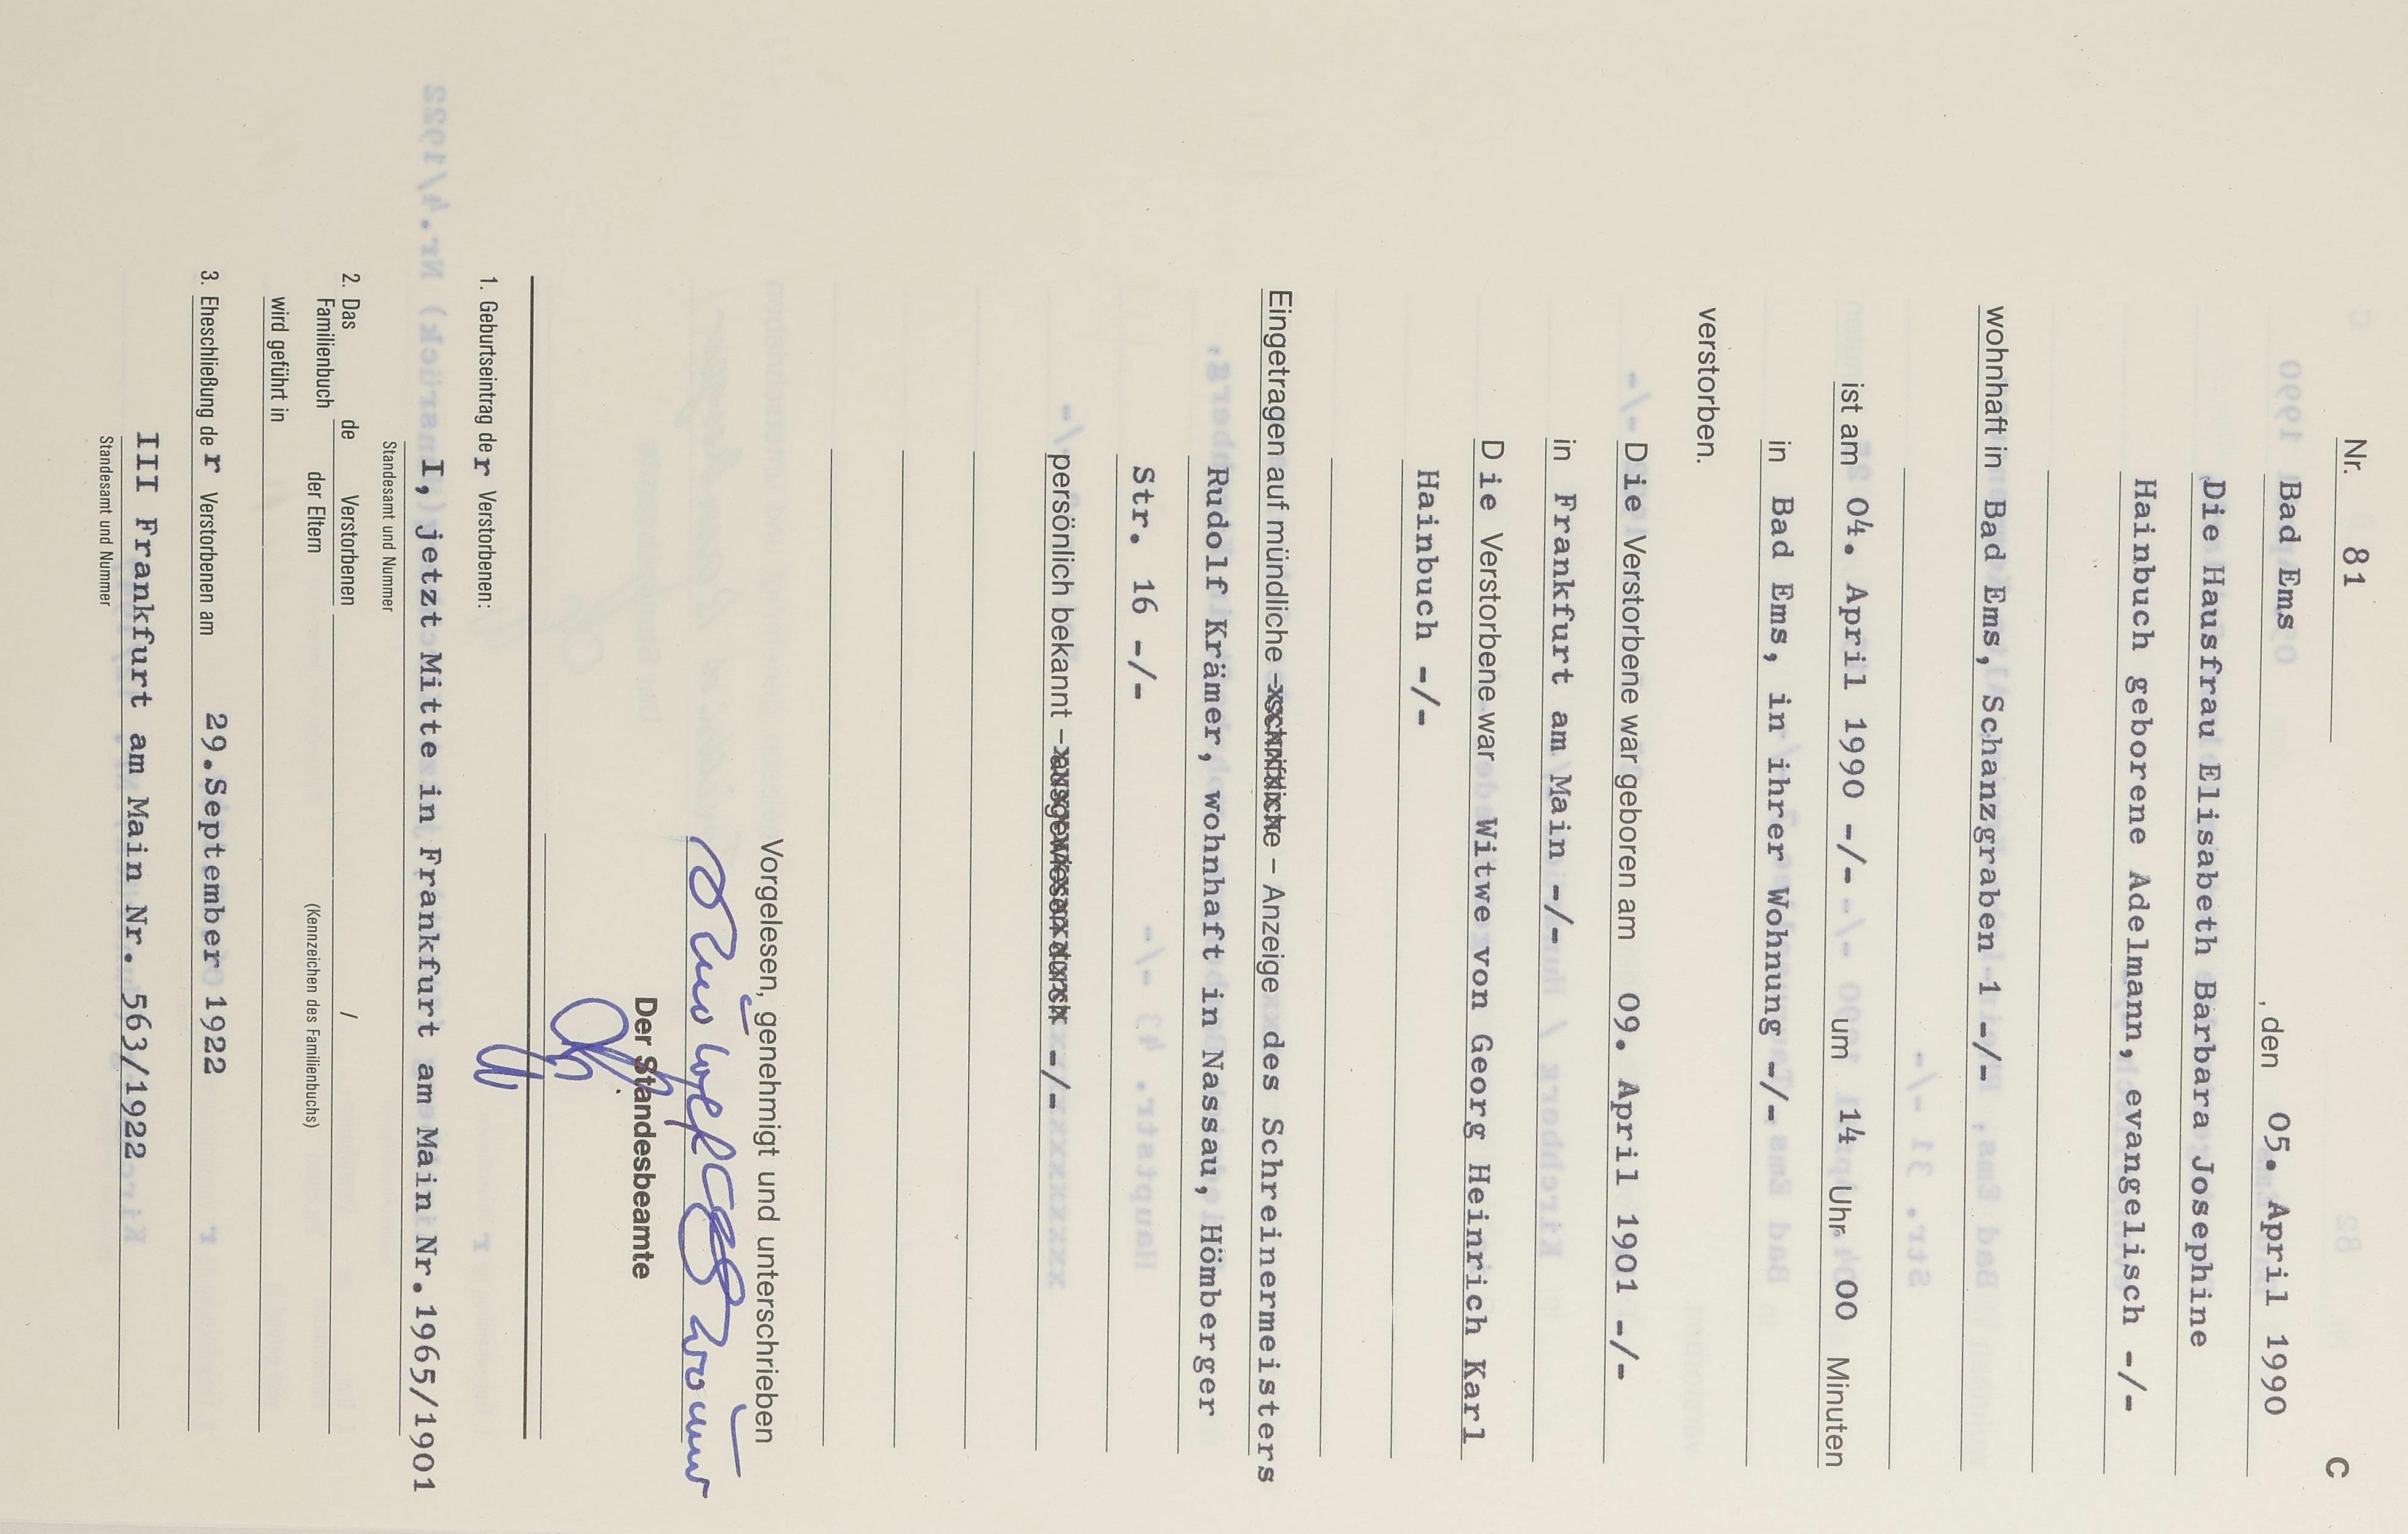 C
Nr. 81
Bad Ems , den 05. April 1990
Die Hausfrau Elisabeth Barbara Josephine
Hainbuch geborene Adelmann, evangelisch -/-
wohnhaft in Bad Ems, Schanzgraben 1 -/-
ist am 04. April 1990 -/- um 14 Uhr 00 Minuten
in Bad Ems, in ihrer Wohnung -/-
verstorben.
Die Verstorbene war geboren am 09. April 1901 -/-
in Frankfurt am Main -/-
Die Verstorbene war Witwe von Georg Heinrich Karl
Hainbuch -/-
Eingetragen auf mündliche – schriftliche – Anzeige des Schreinermeisters
Rudolf Krämer, wohnhaft in Nassau, Hömberger
Str. 16 -/-
persönlich bekannt – ausgewiesen durch -/-
Vorgelesen, genehmigt und unterschrieben
Der Standesbeamte
1. Geburtseintrag der Verstorbenen:
I, jetzt Mitte in Frankfurt am Main Nr. 1965/1901
Standesamt und Nummer
2. Das Familienbuch de Verstorbenen /
der Eltern (Kennzeichen des Familienbuchs)
wird geführt in
3. Eheschließung der Verstorbenen am 29.September 1922
III Frankfurt am Main Nr. 563/1922
Standesamt und Nummer